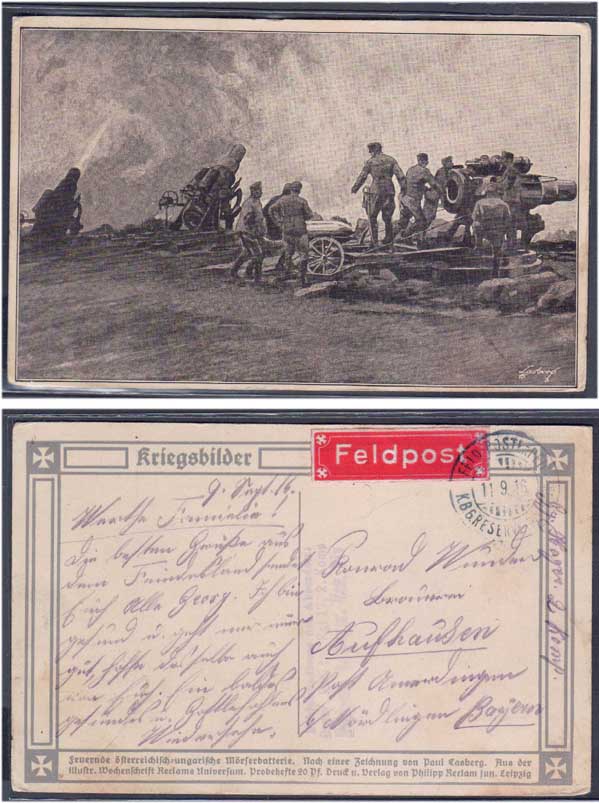 Casberg
Kriegsbilder
Feldpost
11.9.16
K.B.6.RESER
9. Sept. 16.
Werthe Familie!
Die besten Grüße aus
dem Feindesland sendet
Euch Alle Georg. Ich bin
gesund u. geht mir
gut, hoffe dasselbe auch
von Euch. Ein baldiges
gesundes u.
Wiedersehn.
Konrad Wunder
Brauerei
Aufhausen
Post Amerdingen
b/ Nördlingen Bayern
Feuernde österreichisch-ungarische Mörserbatterie. Nach einer Zeichnung von Paul Casberg. Aus der
Illustr. Wochenschrift Reclams Universum. Probehefte 20 Pf. Druck u. Verlag von Philipp Reclam jun. Leipzig